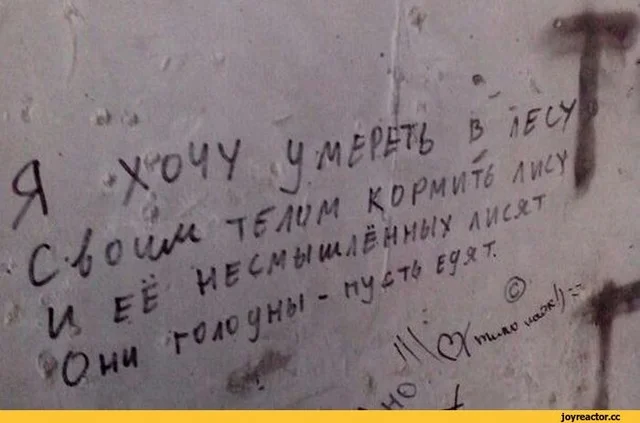 Я ХОЧУ УМЕРЕТЬ В ЛЕСУ
СВОИМ ТЕЛОМ КОРМИТЬ ЛИСУ
И ЕЁ НЕСМЫШЛЁННЫХ ЛИСЯТ
ОНИ ГОЛОДНЫ - ПУСТЬ ЕДЯТ.
©
НО
joyreactor.cc